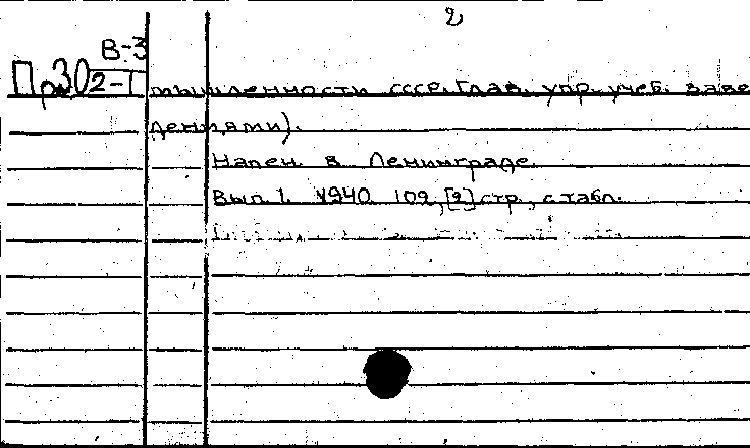 2
В-3
Пр30
2-1
мышленности СССР. Глав. упр. учеб. заве
дениями).
Напеч. в Ленинграде.
Вып. 1. 1940. 109, [2] стр., с табл.